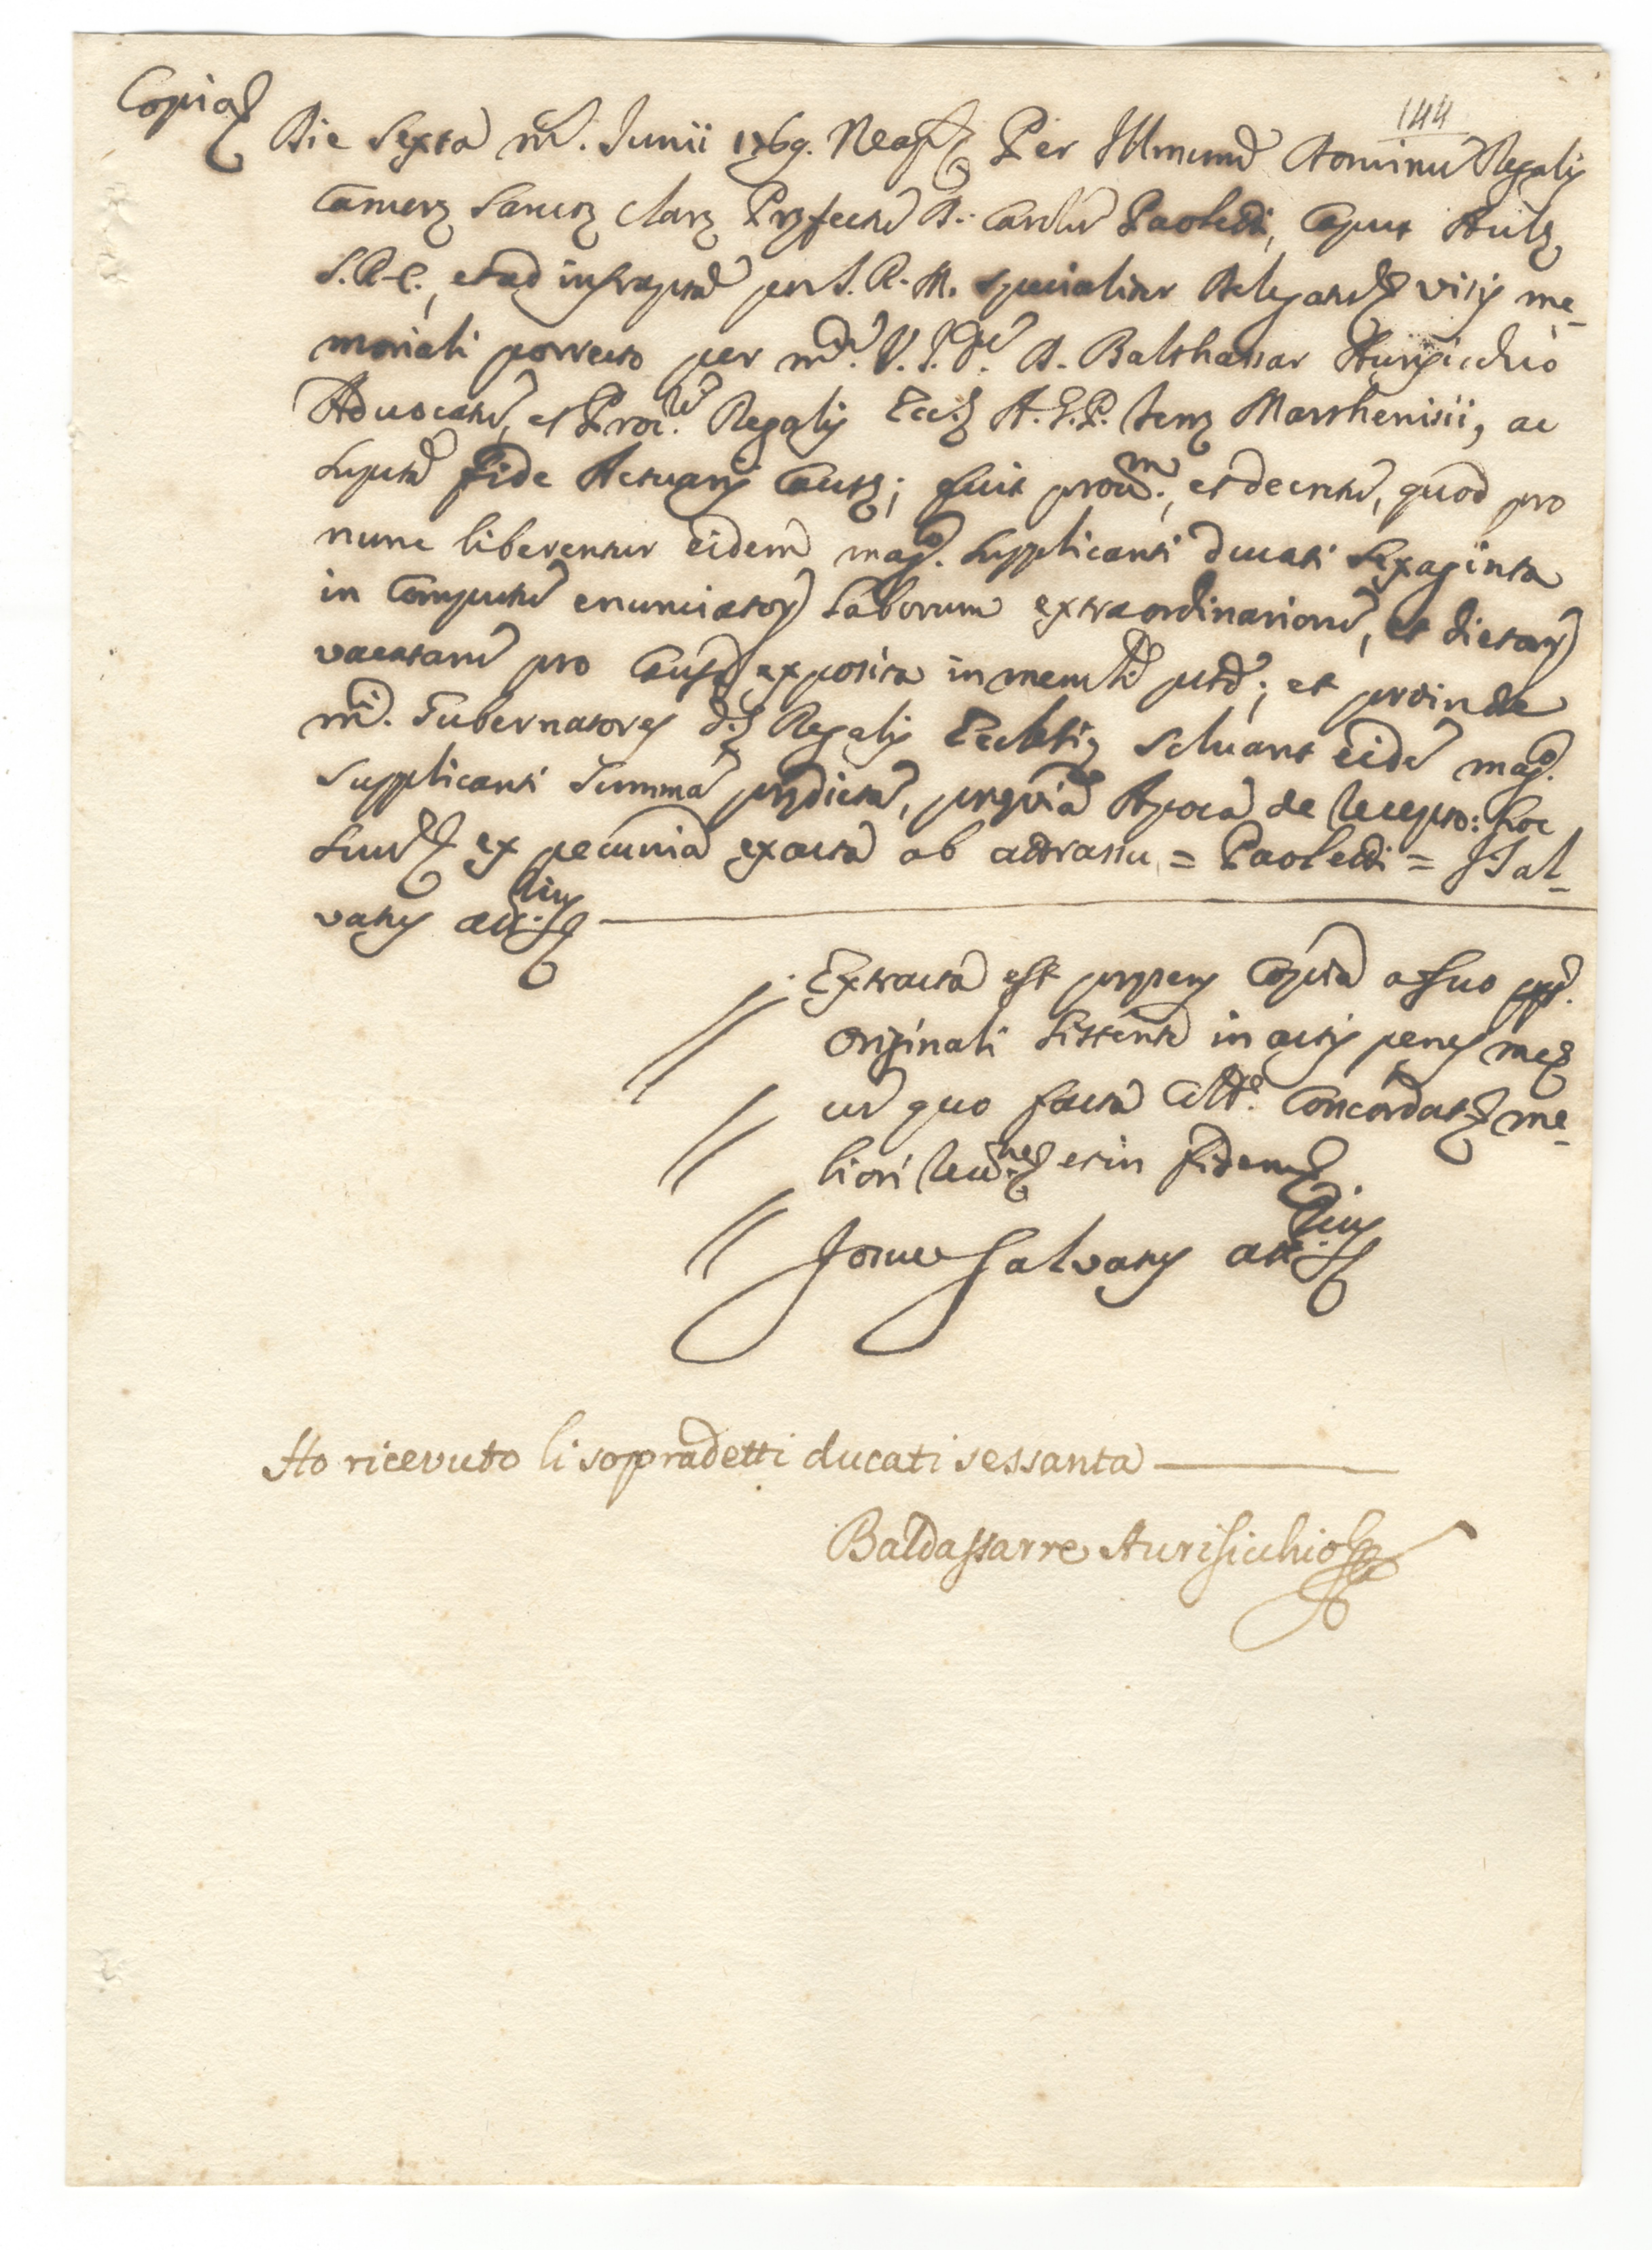 Copia
144
Die sexta m. Junii 1769. Neap. Per Illmum Dominu Regalis
Camerę Sanctę Clarę Pręfectu D. Carolu Paoletti, Caput Aulę
S.R.C., et ad infraptã per S.R.M. specialiter Delegatu visis me-
moriali porrecto per m. V.J.D. D. Balthassar Aurisicchio
Advocatu, et Proc. Regalis Eccl. A.G.P. terrę Marthenisii, ac
supta fide Actuarii Causę; fuit provm., et decretu, quod pro
nunc liberentur eidem mag.co supplicanti ducati sexaginta
in Computu enunciator laborum extraordinarioru, et dietar
vacataru pro Causa exposita in memli ptõ; et proinde
m.ci Gubernatores d.ę Regalis Ecclesię solvant eide mag.co
supplicanti summã prędictã, pręvia Apoca de recepto: hoc
suu ex pecunia exacta ab attrassu = Paoletti = J. Sal-
vatus act.rius
Extracta est pręsens Copia a suo pp.
Originali sistente in actis penes me
cu quo facta Coll.e Concordat me-
liori rev.ne et in fidem
Josue Salvatus act.rius
Ho ricevuto li sopradetti ducati sessanta
Baldassarre Aurisicchio